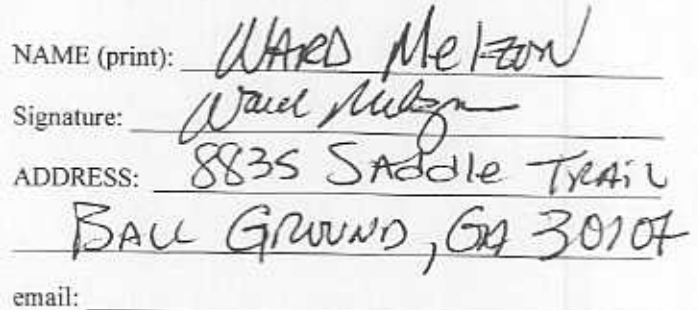 NAME (print): WARD MelzoN
Signature: Ward Melzon
ADDRESS: 8835 SAddle TRAiL
BALL GROUND, GA 30107
email: